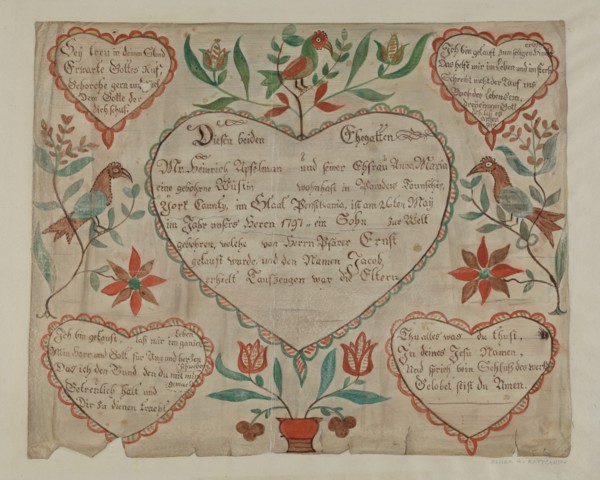 Sey treu in deinem Stand
Erwarte Gottes Ruf,
Gehorche gern und
Dem Gotte der
dich schuf.
Ich bin getauft zum seligen
Das helft mir im Leben und im sterben
Schreibt mich der Tauf ins
Buch des Lebens ein,
Diesen beiden Ehegatten
Mr. Heinrich Apfelman und seiner Ehfrau Anna Maria
eine gebohrne Wustin wohnhaft in Paradeis Taunschip,
York Caunty, im Staat Penssilvania, ist am 26ten May
im Jahr unsers Herrn 1791 ein Sohn zur Welt
gebohren, welche von Herrn Pfarer Ernst
getauft wurde, und den Namen Jacob,
erhielt Taufzeugen war die Eltern
Ich bin getauft, laß mir im ganzen Leben
Mein Herr und Gott für Aug und herzen
Das ich den Bund den du mit mir
Getreulich halt und
Dir zu dienen tracht
Thu alles was du thust,
In deines Jesu Namen,
Und sprich beim Schluß des werks
Gelobet seist du Amen.